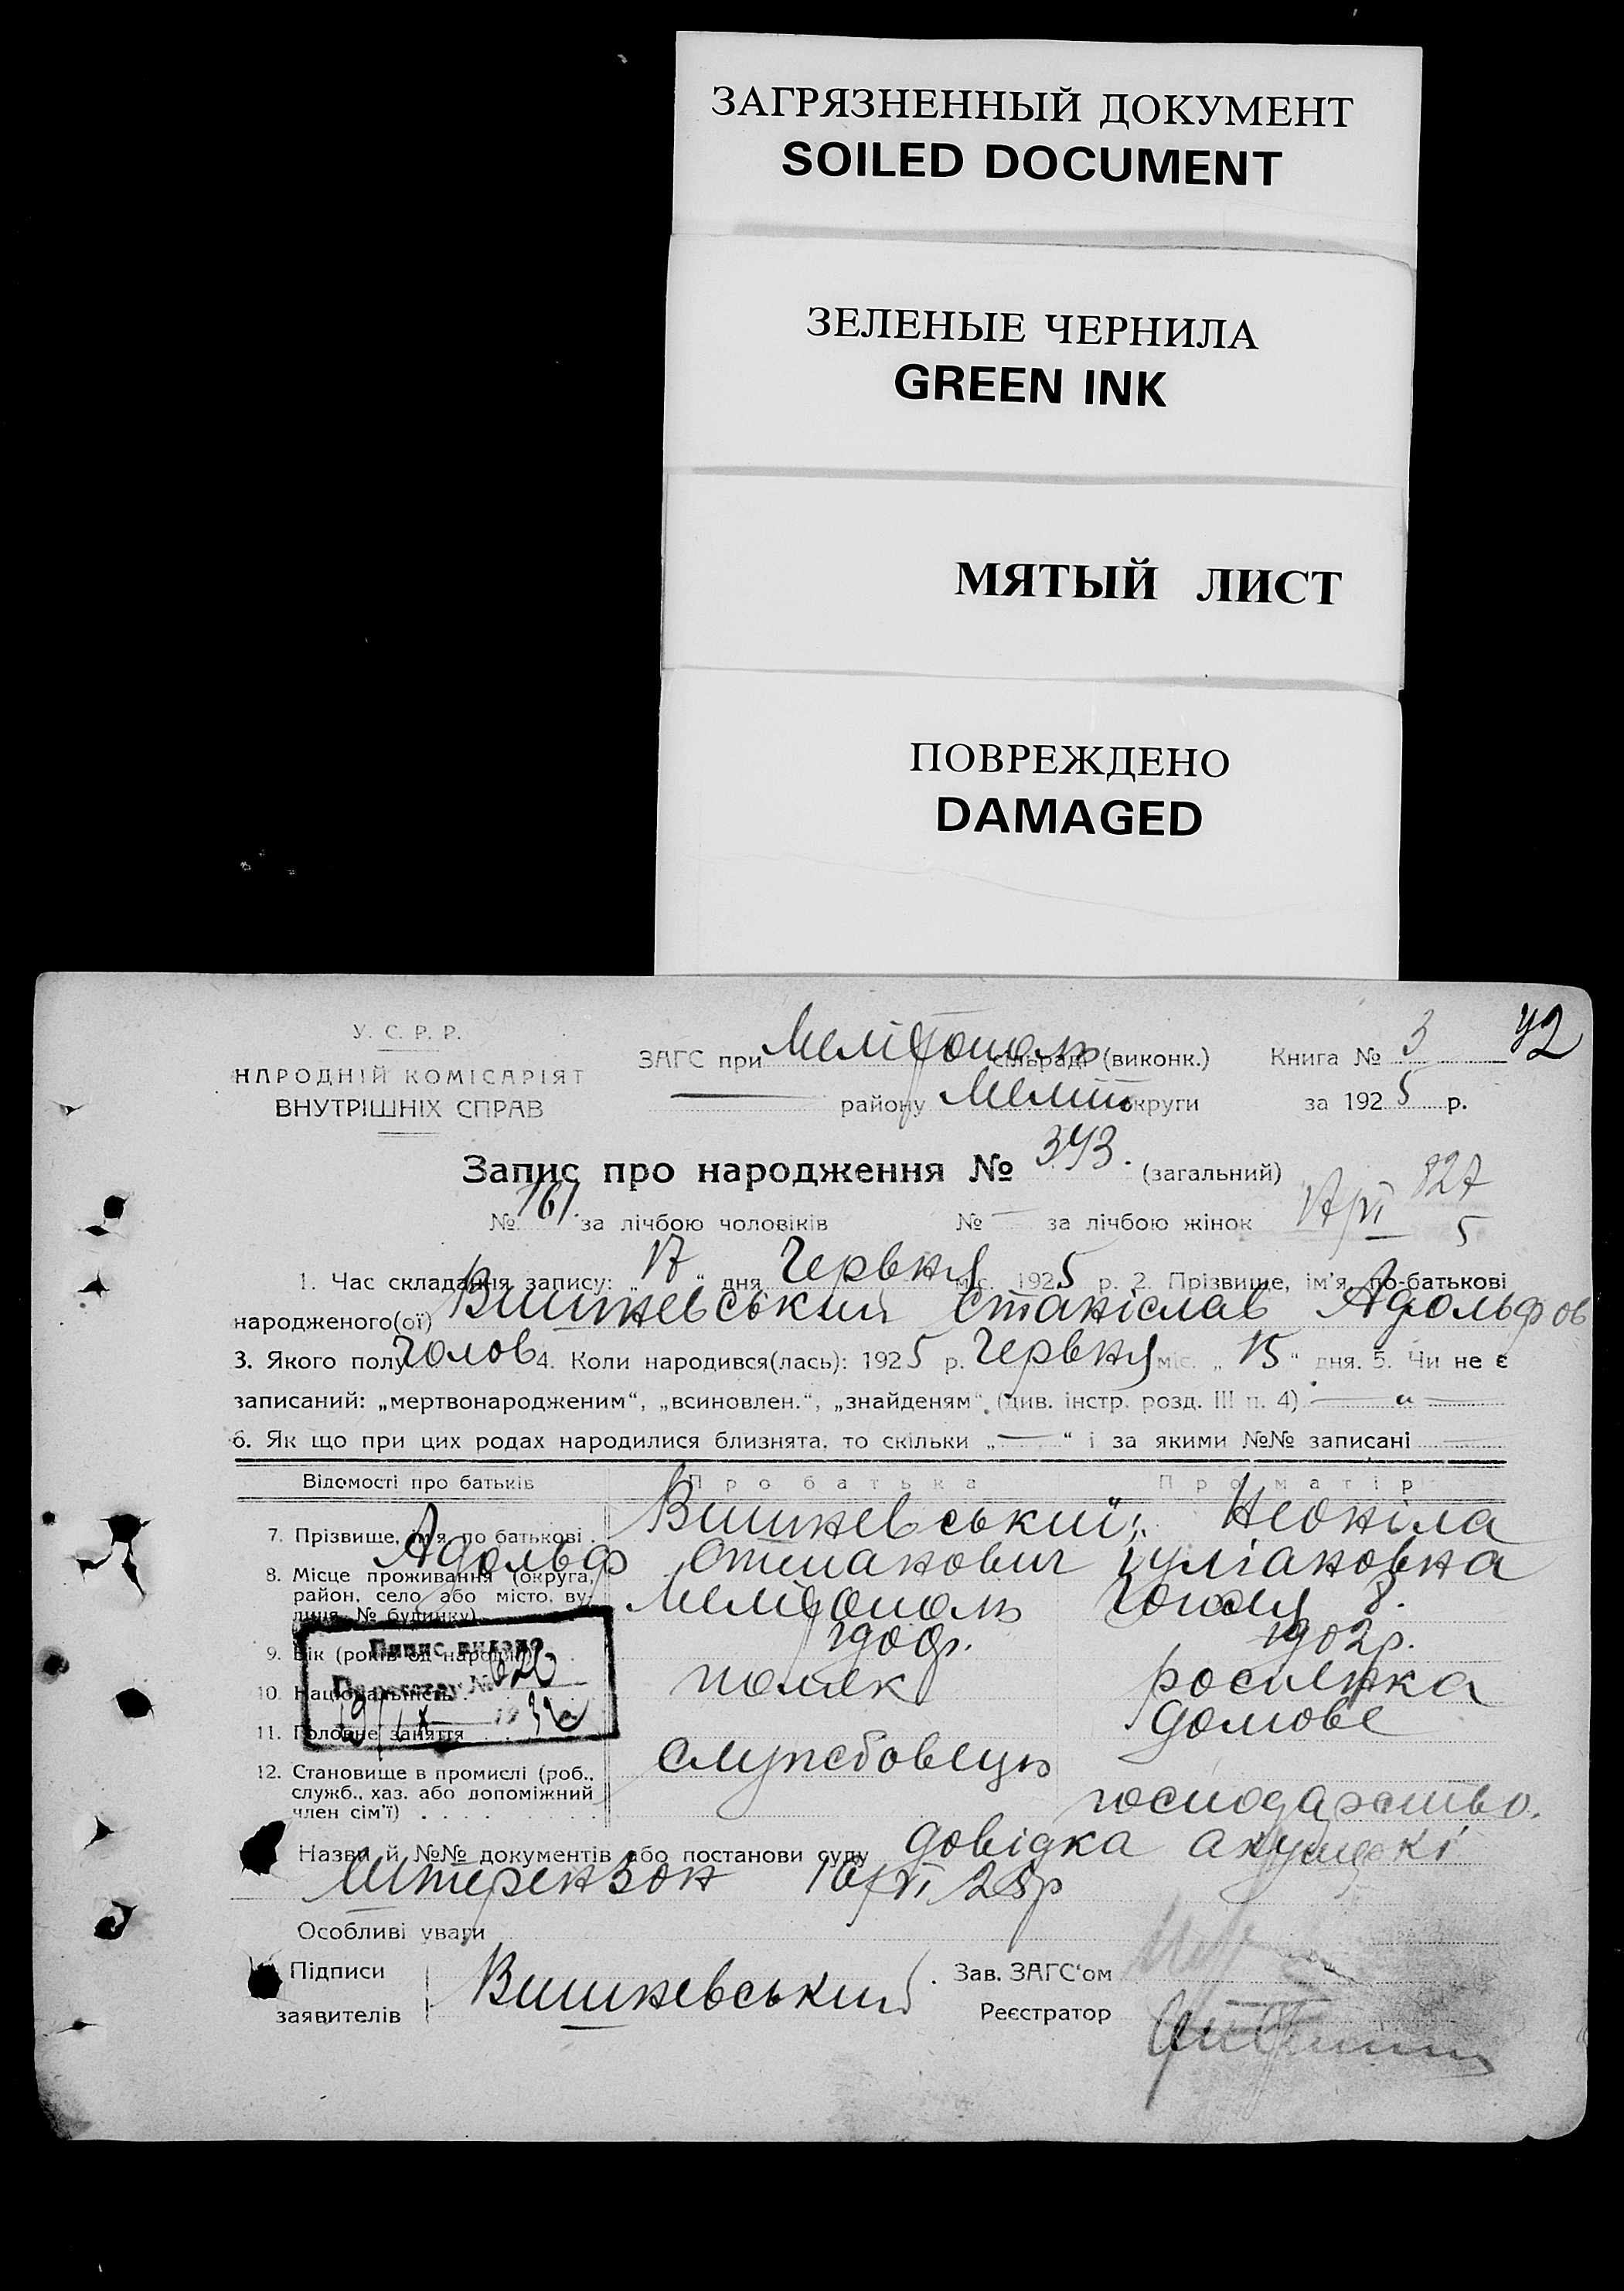 ЗАГРЯЗНЕННЫЙ ДОКУМЕНТ
SOILED DOCUMENT
ЗЕЛЕНЫЕ ЧЕРНИЛА
GREEN INK
МЯТЫЙ ЛИСТ
ПОВРЕЖДЕНО
DAMAGED
У. С. Р. Р.
НАРОДНІЙ КОМІСАРІЯТ
ВНУТРІШНІХ СПРАВ
ЗАГС при Мелітополь сільраді (виконк.) Книга № 3 42
— району Меліт округи за 1925 р.
Запис про народження № 343. (загальний)
827
№ 161. за лічбою чоловіків № — за лічбою жінок 17/VI 5
1. Час складання запису: „17“ дня Червня міс. 1925 р. 2. Прізвище, ім'я, по-батькові
народженого(ої) Вишневський Станіслав Адольфов
3. Якого полу чолов 4. Коли народився(лась): 1925 р. Червня міс. „15“ дня. 5. Чи не є
записаний: „мертвонародженим“, „всиновлен.“, „знайденям“ (див. інстр. розд. III п. 4) — „ —
6. Як що при цих родах народилися близнята, то скільки „—“ і за якими №№ записані —
Відомості про батьків Про батька Про матір
7. Прізвище, ім'я, по батькові Вишневський Неоніла
Адольф Юліановна
8. Місце проживання (округа, район, село або місто, вулиця, № будинку) Мелітополь Гоголя 8.
9. Вік (років од народж.) 1900р. 1902р.
10. Національність поляк росіянка
11. Головне заняття домове
12. Становище в промислі (роб., служб., хаз. або допоміжний член сім'ї) службовець
господарство.
Назви й №№ документів або постанови суду довідка акушерки
Штерензон 16/VI 25р
Особливі уваги
Підписи
заявителів Вишневський
Зав. ЗАГС'ом
Реєстратор